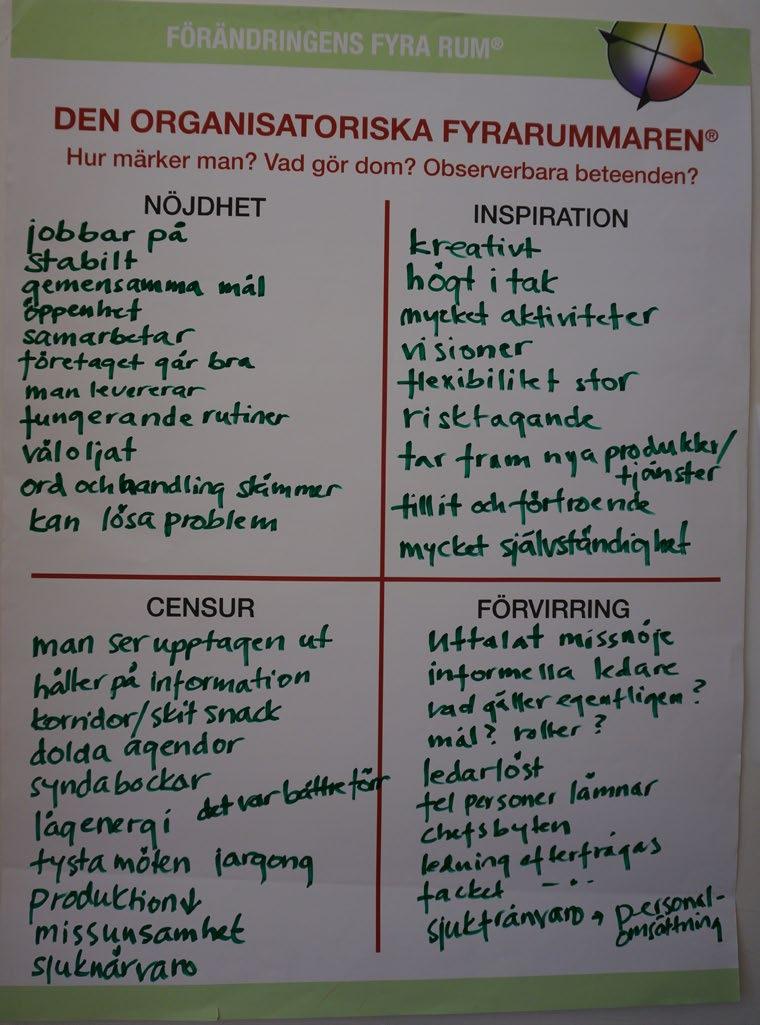 FÖRÄNDRINGENS FYRA RUM®
DEN ORGANISATORISKA FYRARUMMAREN®
Hur märker man? Vad gör dom? Observerbara beteenden?
NÖJDHET
jobbar på
stabilt
gemensamma mål
öppenhet
samarbetar
företaget går bra
man levererar
fungerande rutiner
väloljat
ord och handling stämmer
kan lösa problem
INSPIRATION
kreativt
högt i tak
mycket aktiviteter
visioner
flexibilitet stor
risktagande
tar fram nya produkter/
tjänster
tillit och förtroende
mycket självständighet
CENSUR
man ser upptagen ut
håller på information
korridor/skit snack
dolda agendor
syndabockar
lågenergi det var bättre förr
tysta möten jargong
produktion↓
missunsamhet
sjuknärvaro
FÖRVIRRING
Uttalat missnöje
informella ledare
vad gäller egentligen?
mål? roller?
ledarlöst
fel personer lämnar
chefsbyten
ledning efterfrågas
facket - ·· -
sjukfrånvaro → personal-
omsättning